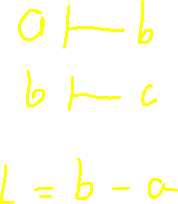 a ⊢ b
b ⊢ c
L = b - a